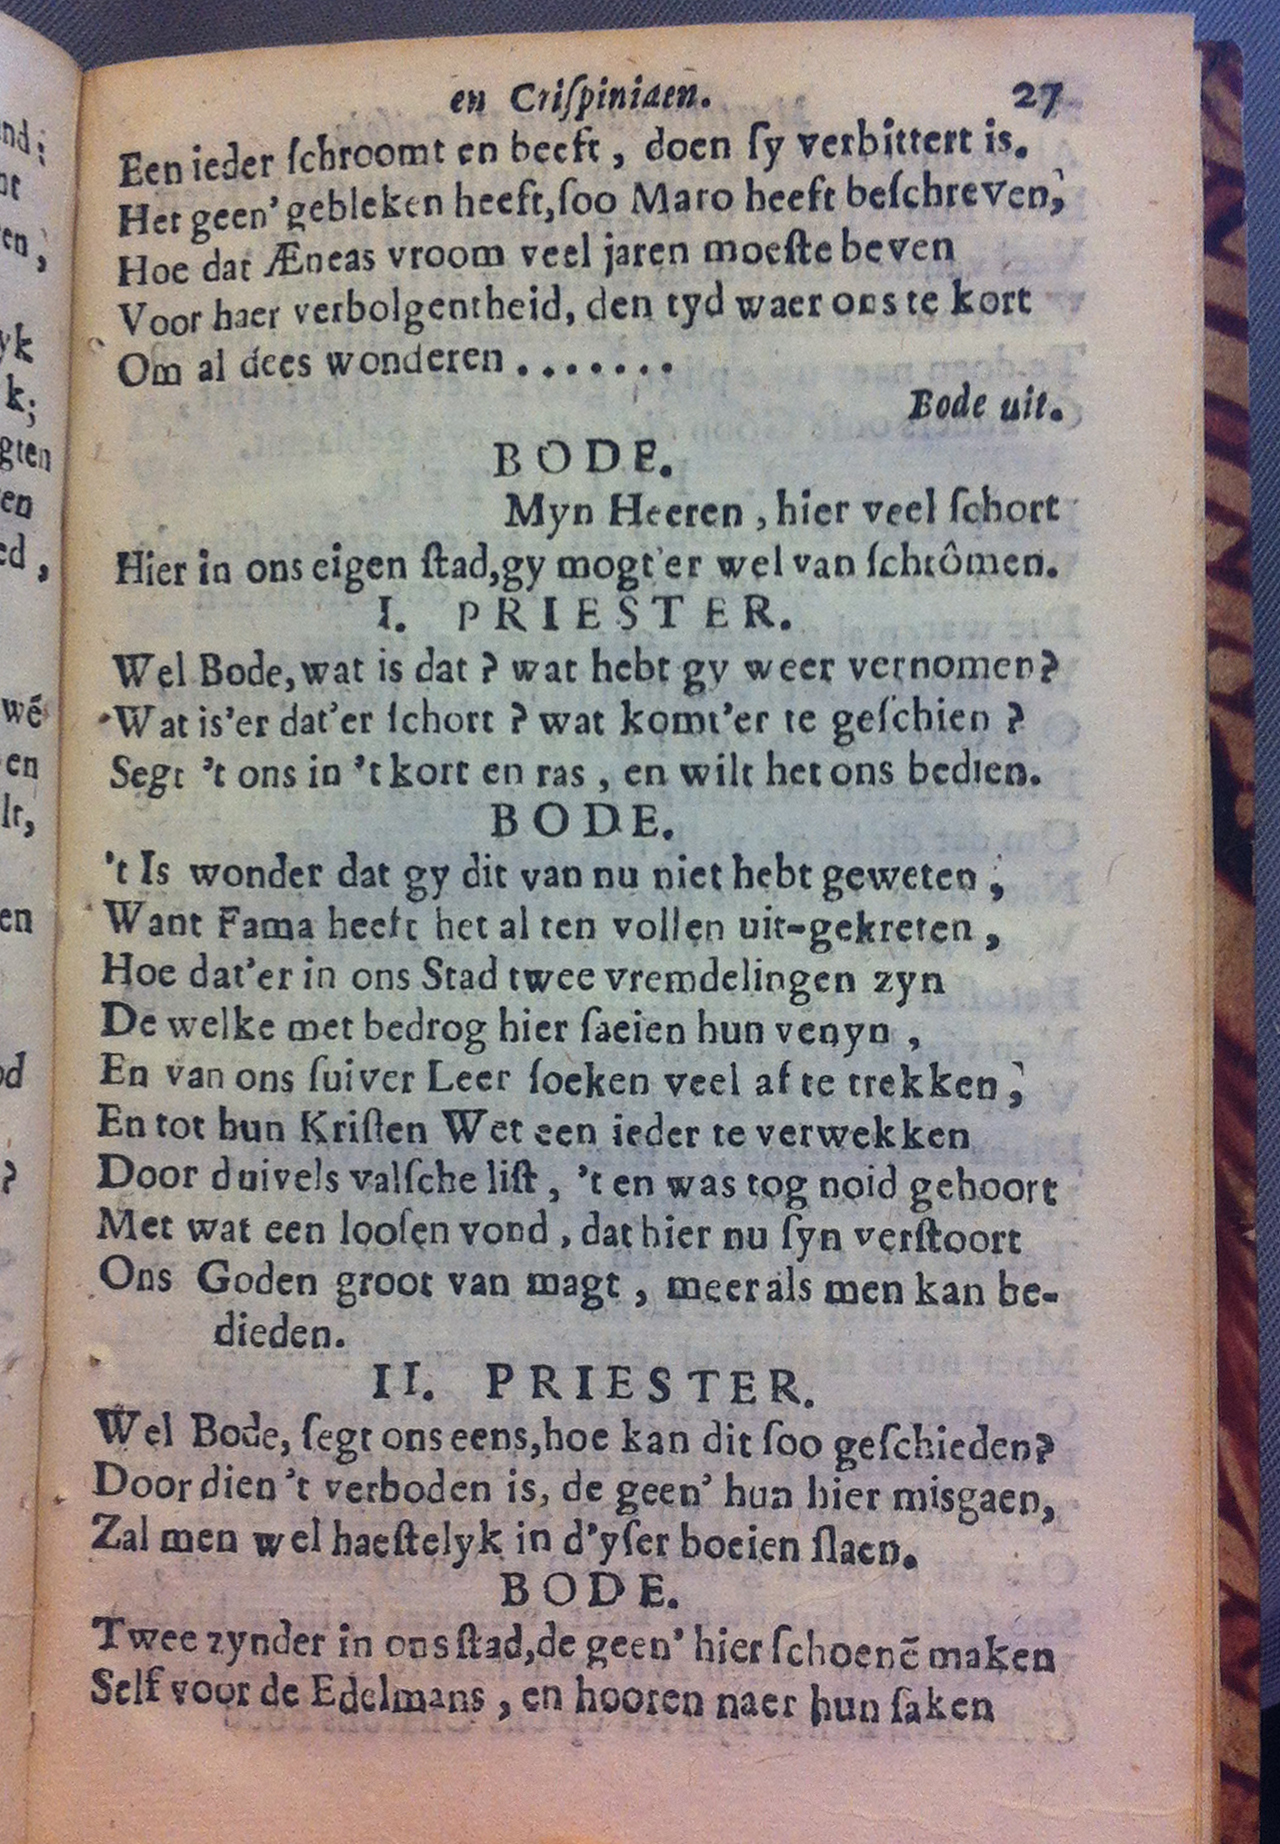 en Criſpiniaen. 27
Een ieder ſchroomt en beeft, doen ſy verbittert is.
Het geen' gebleken heeft, ſoo Maro heeft beſchreven,
Hoe dat Æneas vroom veel jaren moeſte beven
Voor haer verbolgentheid, den tyd waer ons te kort
Om al dees wonderen .......
Bode uit.
BODE.
Myn Heeren, hier veel ſchort
Hier in ons eigen ſtad, gy mogt'er wel van ſchrômen.
I. PRIESTER.
Wel Bode, wat is dat? wat hebt gy weer vernomen?
Wat is'er dat'er ſchort? wat komt'er te geſchien?
Segt 't ons in 't kort en ras, en wilt het ons bedien.
BODE.
't Is wonder dat gy dit van nu niet hebt geweten;
Want Fama heeft het al ten vollen uit-gekreten,
Hoe dat'er in ons Stad twee vremdelingen zyn
De welke met bedrog hier ſaeien hun venyn,
En van ons ſuiver Leer ſoeken veel af te trekken;
En tot hun Kriſten Wet een ieder te verwekken
Door duivels valſche liſt, 't en was tog noid gehoort
Met wat een looſen vond, dat hier nu ſyn verſtoort
Ons Goden groot van magt, meer als men kan be-
dieden.
II. PRIESTER.
Wel Bode, ſegt ons eens, hoe kan dit ſoo geſchieden?
Door dien 't verboden is, de geen' hun hier misgaen,
Zal men wel haeſtelyk in d'yſer boeien ſlaen.
BODE.
Twee zynder in ons ſtad, de geen' hier ſchoenē maken
Self voor de Edelmans, en hooren naer hun ſaken
nd;
en,
yk
k;
gten
en
ed,
wē
en
lt,
en
od
?